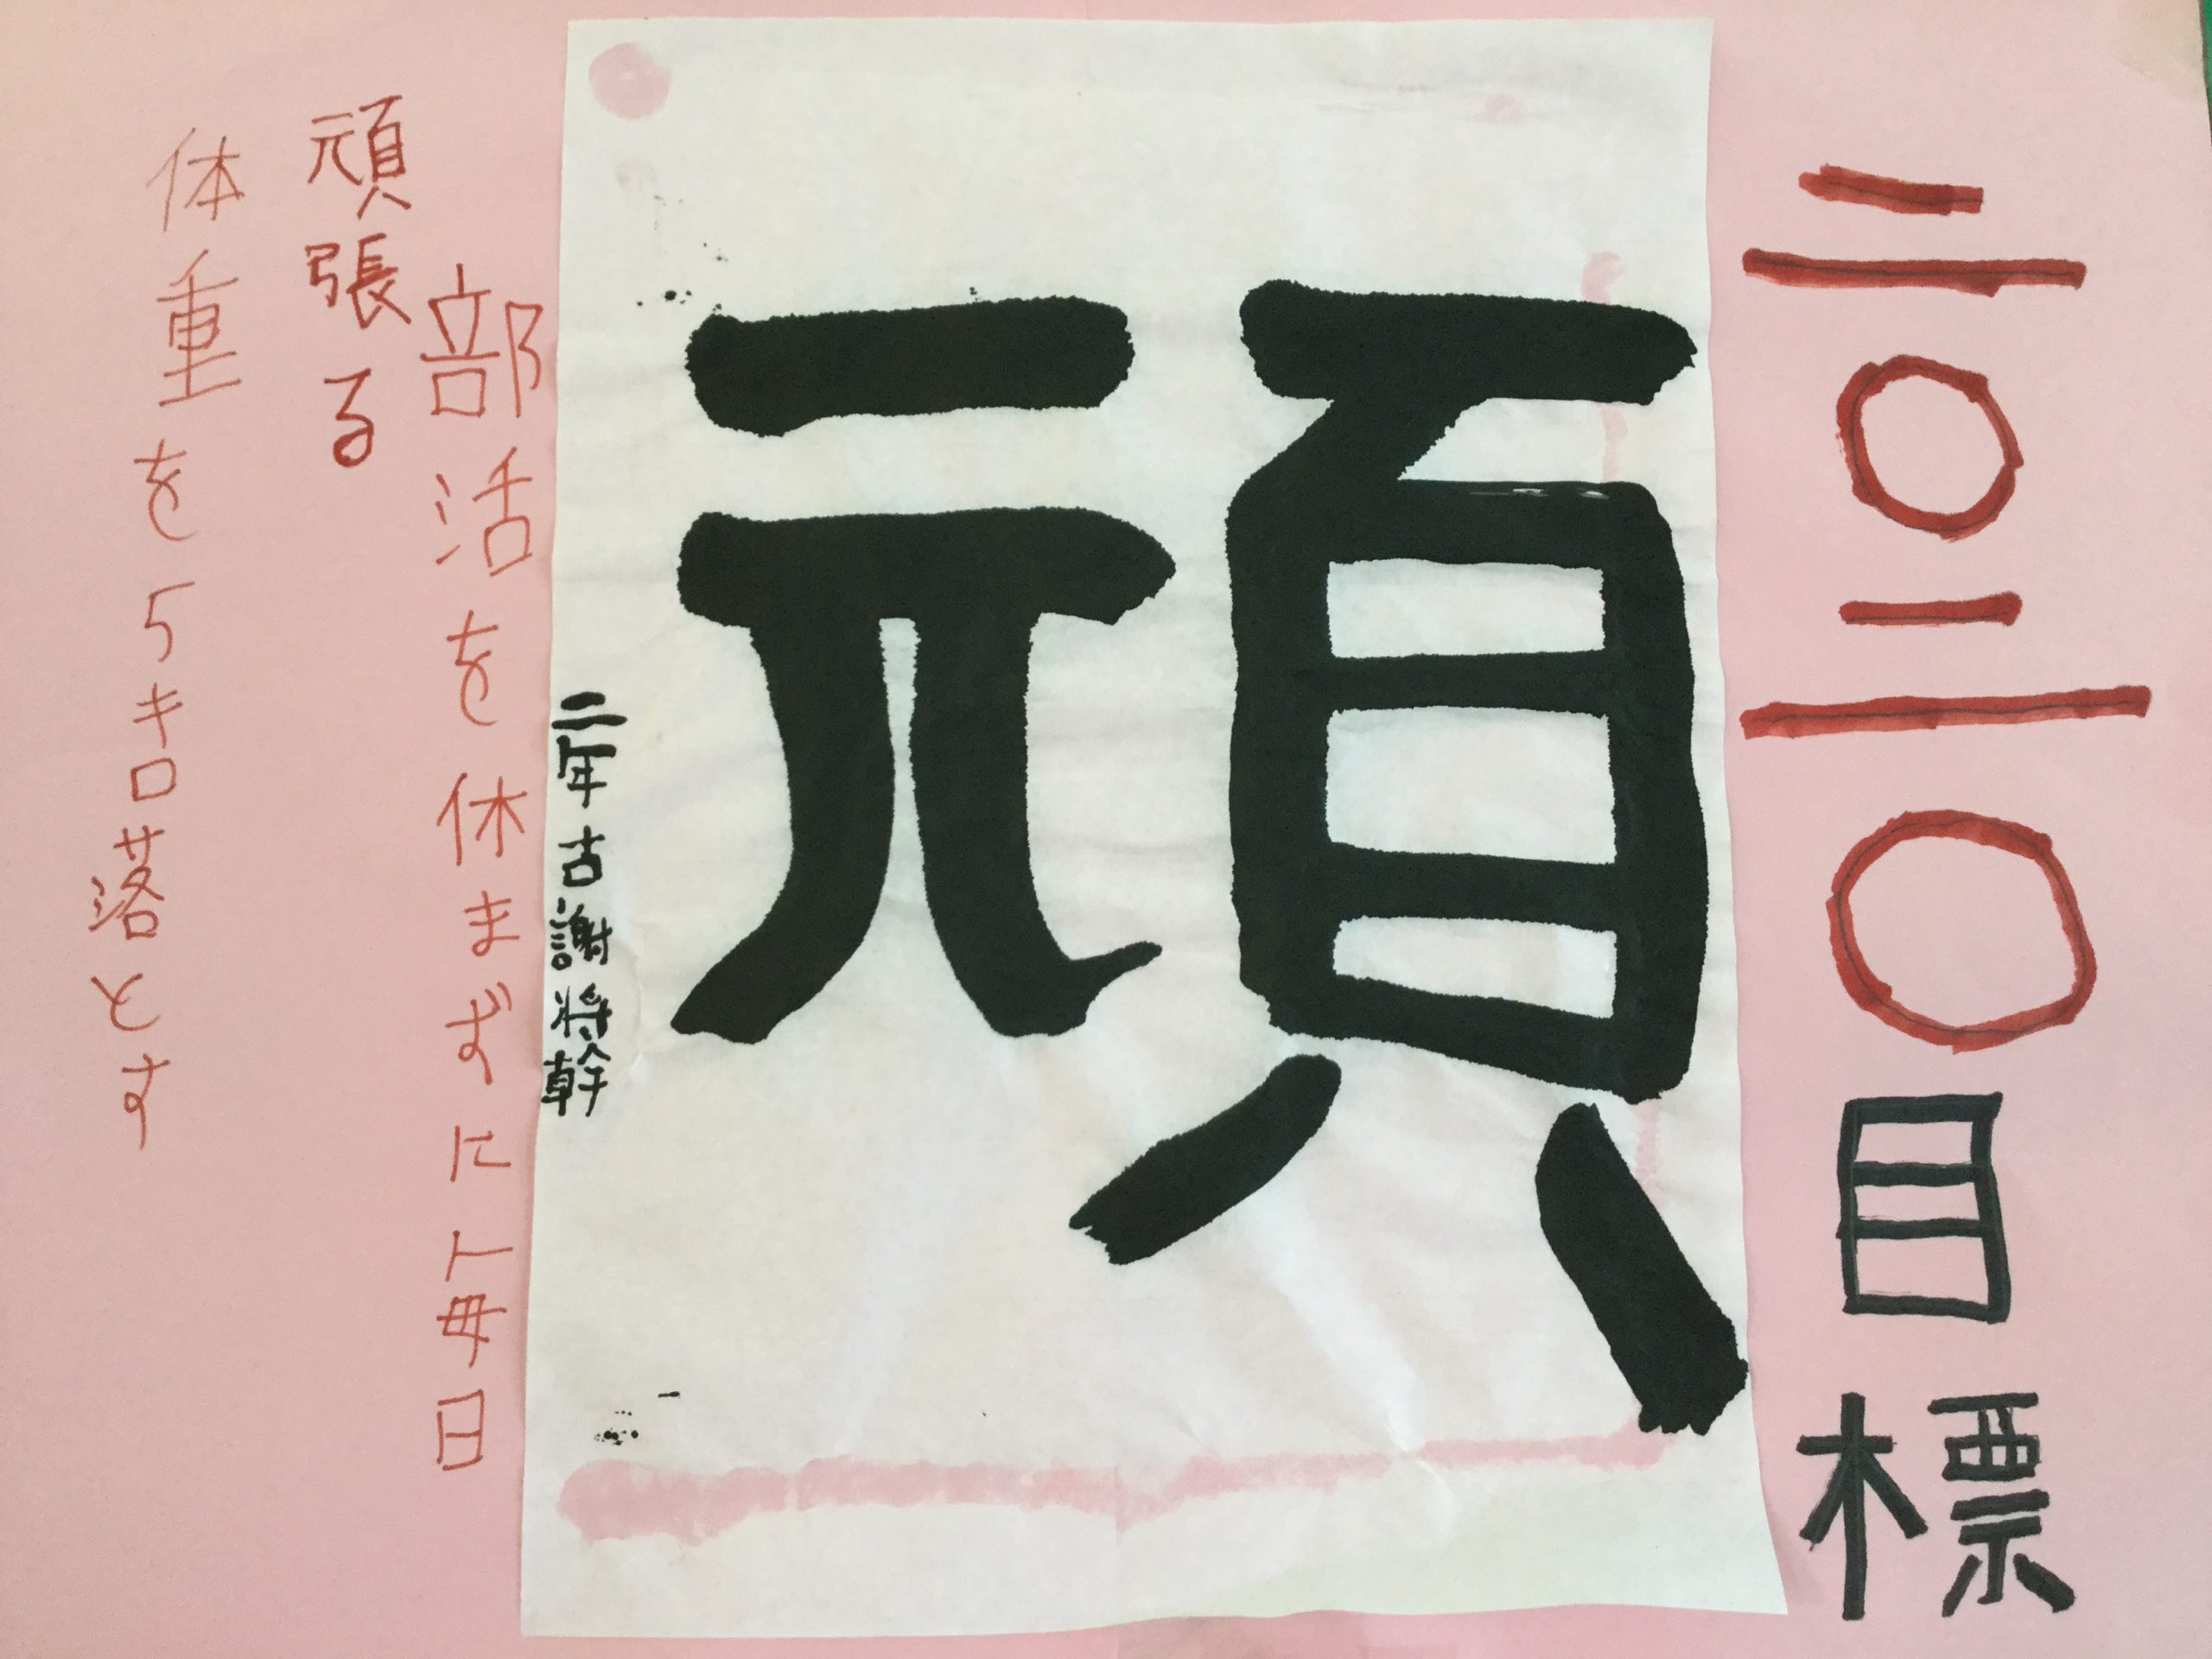 二〇二〇目標
頑
二年古謝将幹
部活を休まずに毎日
頑張る
体重を5キロ落とす